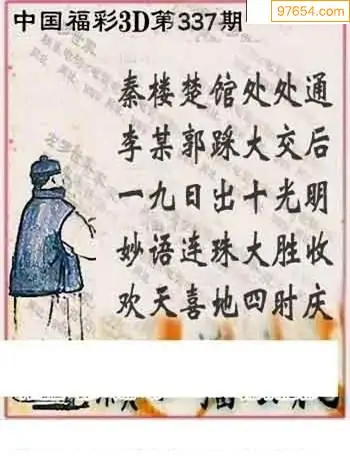 97654.com
中国福彩3D第337期
秦楼楚馆处处通
李某郭踩大交后
一九日出十光明
妙语连珠大胜收
欢天喜地四时庆